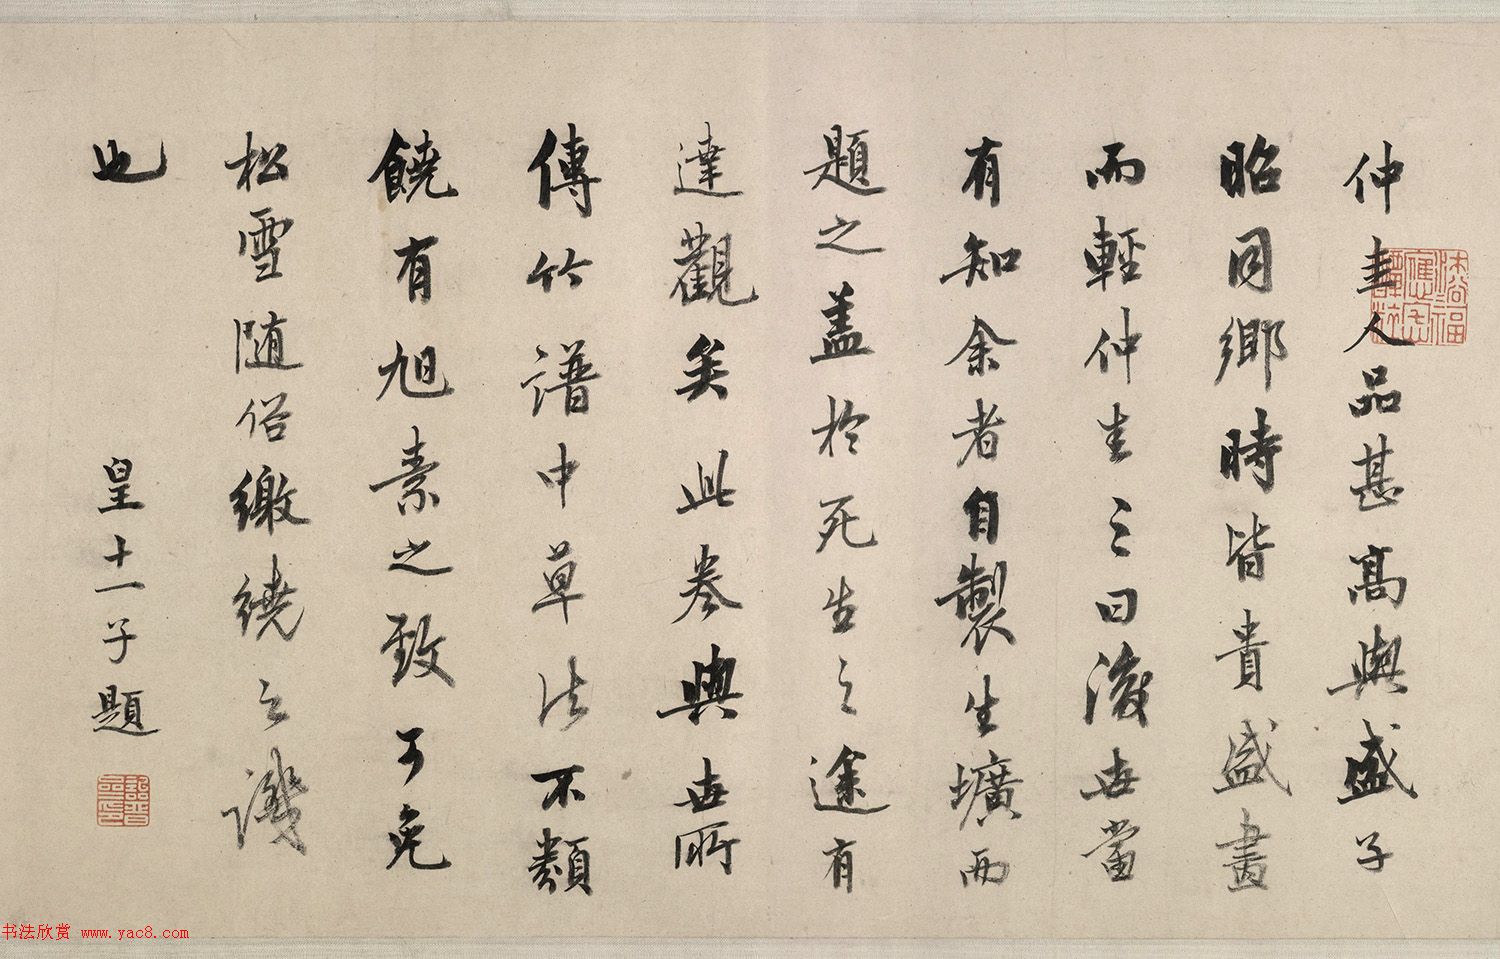 仲圭人品甚髙與盛子
昭同鄉時皆貴盛畫
而輕仲圭之曰後世當
有知余者自製生壙而
題之盖於死生之途有
達觀矣此卷與世所
傳竹譜中草法不類
饒有旭素之致可免
松雪随俗繳繞之譏
也
皇十一子題
书法欣赏 www.yac8.com